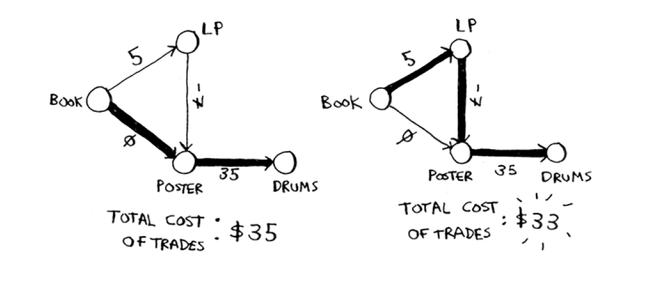 LP
5
BOOK
-7
0
35
POSTER
DRUMS
TOTAL COST
OF TRADES : $35
LP
5
BOOK
-7
0
35
POSTER
DRUMS
TOTAL COST
OF TRADES : $33